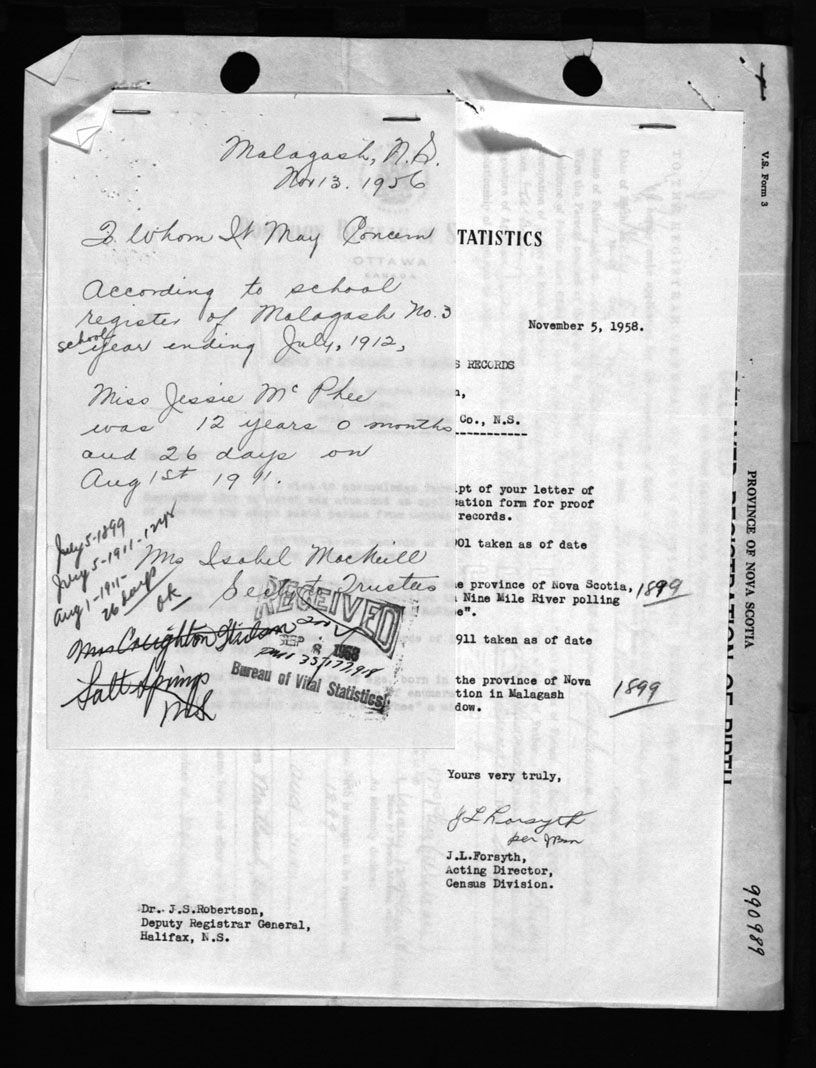 Malagash, N.S.
Nov 13. 1956
To Whom It May Concern
According to school
register of Malagash No. 3
school year ending July, 1912,
Miss Jessie McPhee
was 12 years 0 months
and 26 days on
Aug 1st 1911.
July 5-1899
July 5-1911-12 yr
Aug 1-1911-
26 days
ok
Mrs Isabel MacNeill
Sect'y to Trustees
RECEIVED
SEP 8 1958
Bureau of Vital Statistics
Mrs Creighton
Salt Springs
NS
TATISTICS
OTTAWA
CANADA
November 5, 1958.
S RECORDS
Co., N.S.
ipt of your letter of
cation form for proof
records.
901 taken as of date
e province of Nova Scotia, 1899
Nine Mile River polling
e".
911 taken as of date
the province of Nova
tion in Malagash 1899
dow.
Yours very truly,
J L Forsyth
per
J.L.Forsyth,
Acting Director,
Census Division.
Dr. J.S.Robertson,
Deputy Registrar General,
Halifax, N.S.
V.S. Form 3
PROVINCE OF NOVA SCOTIA
REGISTRATION OF BIRTH
990989